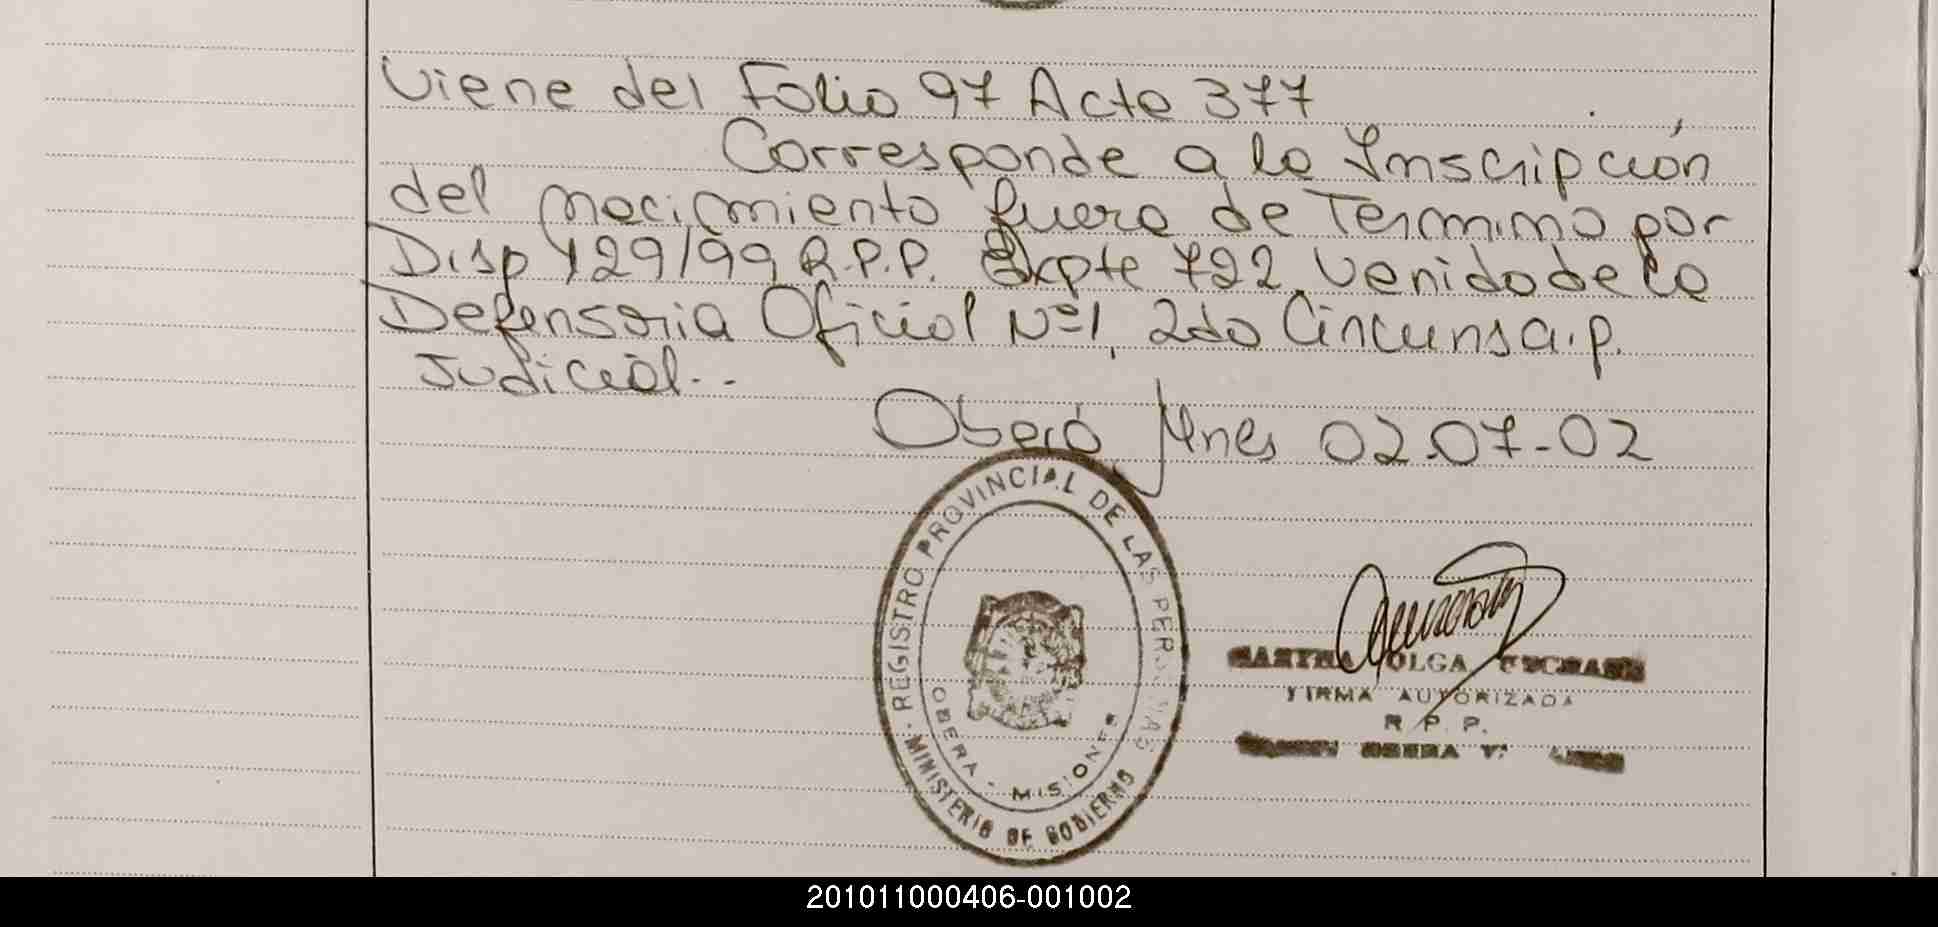 Viene del Folio 97 Acta 377
Corresponde a la Inscripción
del nacimiento fuera de Termino por
Disp 129/99 R.P.P. Expte 722 venido de la
Defensoria Oficial Nº1, 2da Circunscrip.
Judicial..
Oberá, Mnes 02.07-02
REGISTRO PROVINCIAL DE LAS PERSONAS
MINISTERIO DE GOBIERNO
OBERA - MISIONES
OLGA
FIRMA AUTORIZADA
R. P. P.
OBERA
201011000406-001002